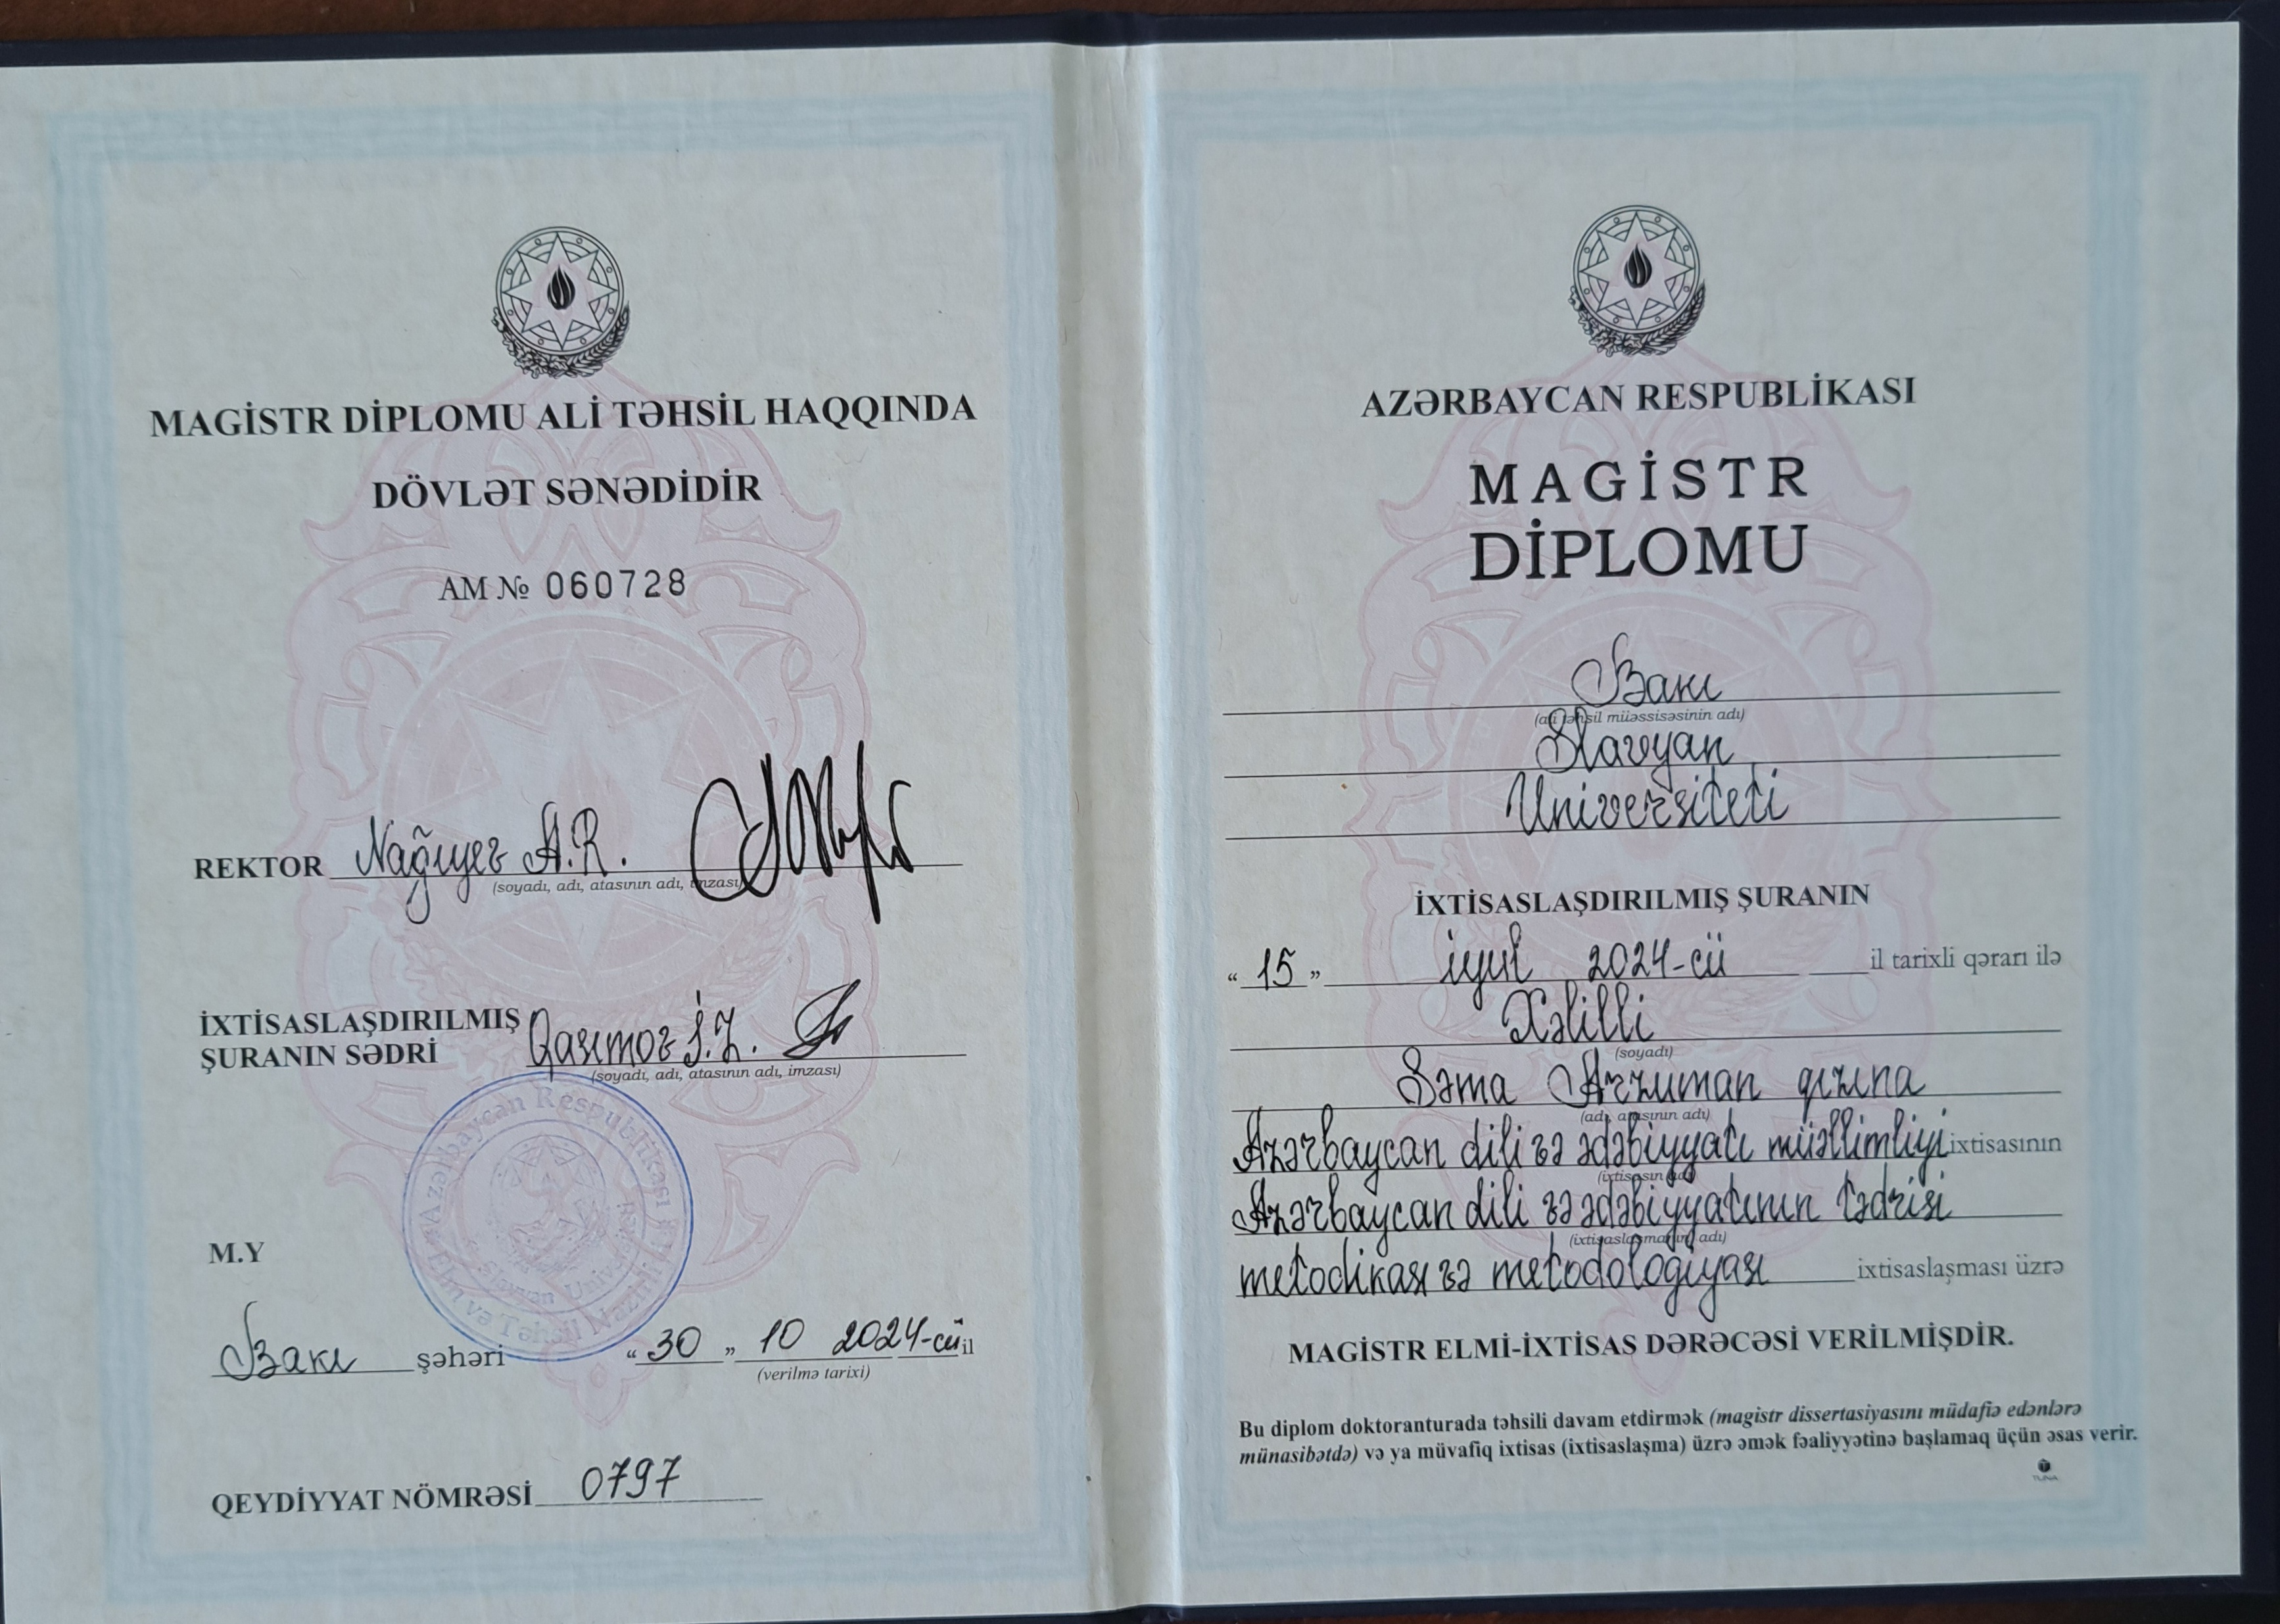 MAGİSTR DİPLOMU ALİ TƏHSİL HAQQINDA
DÖVLƏT SƏNƏDİDİR
AM № 060728
REKTOR Nağıyev A.R.
(soyadı, adı, atasının adı, imzası)
İXTİSASLAŞDIRILMIŞ
ŞURANIN SƏDRİ Qasımov İ.Z.
(soyadı, adı, atasının adı, imzası)
Azərbaycan Respublikası
Elm və Təhsil Nazirliyi
Slavyan
M.Y
Bakı şəhəri “30” 10 2024-cü il
(verilmə tarixi)
QEYDİYYAT NÖMRƏSİ 0797
AZƏRBAYCAN RESPUBLİKASI
MAGİSTR
DİPLOMU
Bakı
(ali təhsil müəssisəsinin adı)
Slavyan
Universiteti
İXTİSASLAŞDIRILMIŞ ŞURANIN
“15” iyul 2024-cü il tarixli qərarı ilə
Xəlilli
(soyadı)
Səma Arzuman qızına
(adı, atasının adı)
Azərbaycan dili və ədəbiyyatı müəllimliyi ixtisasının
(ixtisasın adı)
Azərbaycan dili və ədəbiyyatının tədrisi
(ixtisaslaşmanın adı)
metodikası və metodologiyası ixtisaslaşması üzrə
MAGİSTR ELMİ-İXTİSAS DƏRƏCƏSİ VERİLMİŞDİR.
Bu diplom doktoranturada təhsili davam etdirmək (magistr dissertasiyasını müdafiə edənlərə
münasibətdə) və ya müvafiq ixtisas (ixtisaslaşma) üzrə əmək fəaliyyətinə başlamaq üçün əsas verir.
TUNA